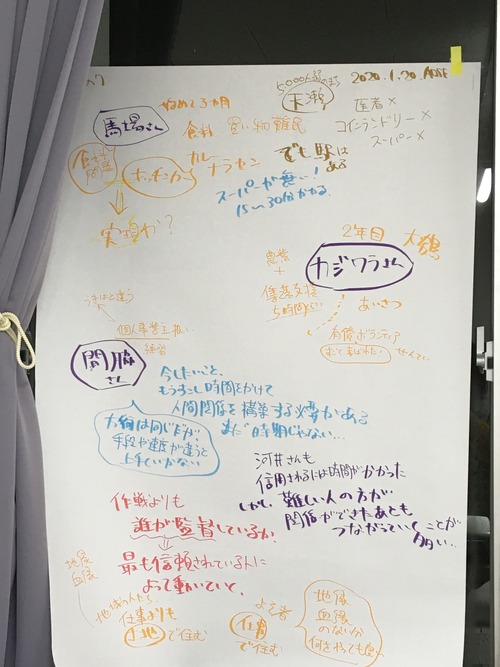 2020.1.20.
5000人弱のまち
天瀬
医者 ×
コインランドリー ×
スーパー ×
でも駅は
ある
やめて3ヵ月
馬場さん
食料 買い物難民
食料
問題
キッチンカー
カレー
ナラセン
スーパーが無い!
15〜30分かかる
実現か?
2年目 大鶴
カジワラさん
集落支援
5時間
あいさつ
有償ボランティア
うきはと違う
個人事業主
練習
関脇
さん
今したいこと、
もう少し時間をかけて
人間関係を構築する必要がある
まだ時期じゃない…
方向は同じだが、
手段や速度が違うと
上手くいかない
河井さんも
信用されるには時間がかかった
しかし、難しい人の方が
関係ができたあとも
つながっていくことが
多い…
作戦よりも
誰が監督しているか?
最も信頼されている人に
よって動いていく。
地縁
血縁
地域の人たち
仕事よりも
土地で住む
よそ者
仕事
で住む
地縁
血縁
のない分
何をやっても良い